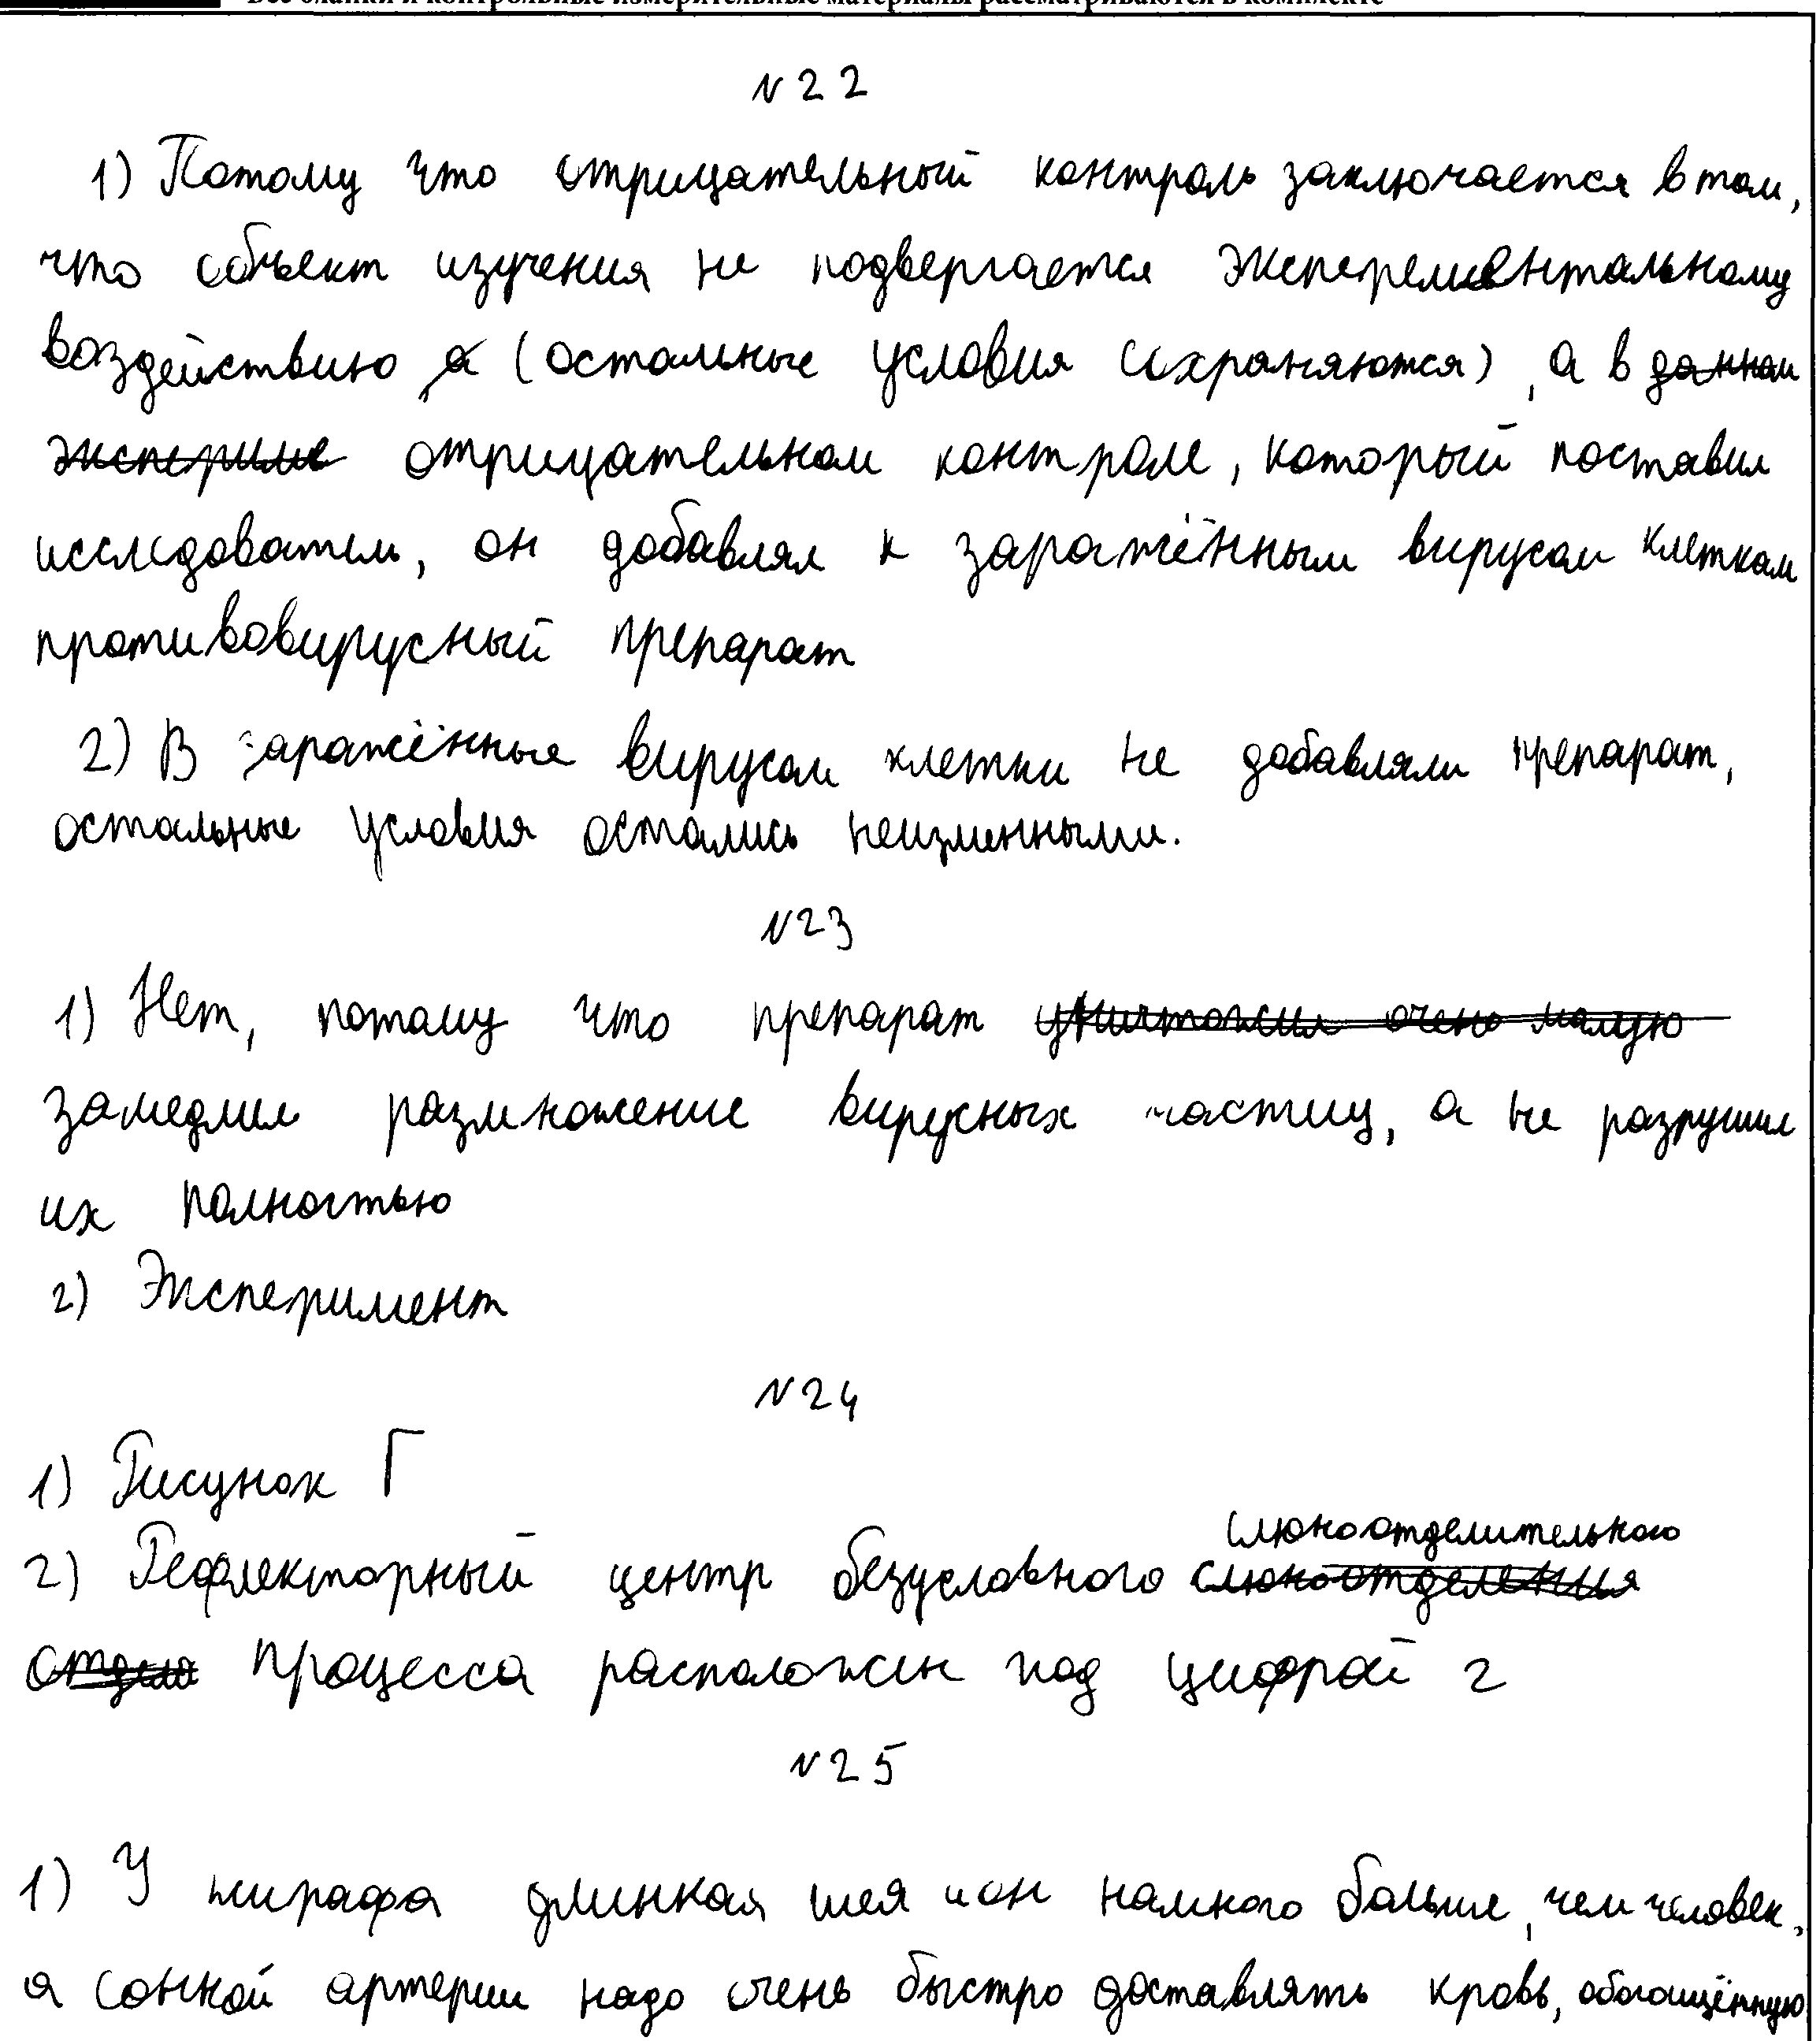 Все бланки и контрольные измерительные материалы рассматриваются в комплекте
№22
1) Потому что отрицательный контроль заключается в том,
что объект изучения не подвергается эксперементальному
воздействию а (остальные условия сохраняются), а в данном
экспериме отрицательном контроле, который поставил
исследователь, он добавлял к заражённым вирусом клеткам
противовирусный препарат
2) В заражённые вирусом клетки не добавляли препарат,
остальные условия остались неизменными.
№23
1) Нет, потому что препарат уничтожил очень малую
замедлил размножение вирусных частиц, а не разрушил
их полностью
2) Эксперимент
№24
1) Рисунок Г
слюноотделительного
2) Рефлекторный центр безусловного слюноотделения
отдело процесса расположен под цифрой 2
№25
1) У жирафа длинная шея и он намного больше, чем человек,
а сонной артерии надо очень быстро доставлять кровь, обогащённую